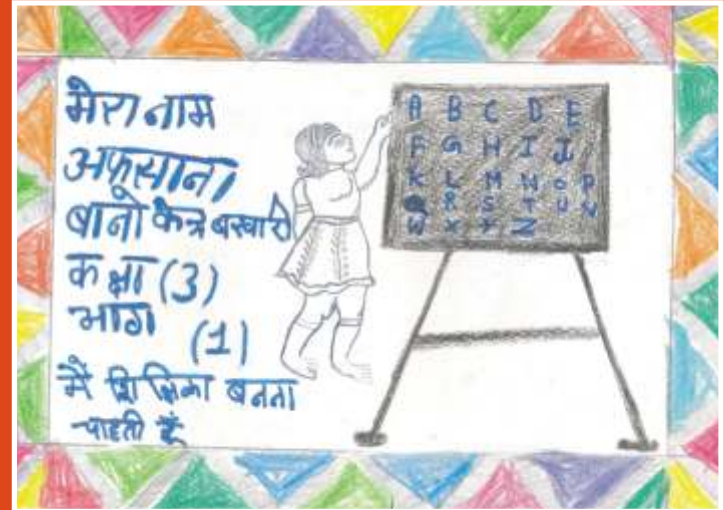 मेरा नाम
अफ़साना
बानो केन्द्र बखारी
कक्षा (3)
भाग (1)
मैं शिक्षिका बनना
चाहती हूँ
A B C D E
F G H I J
K L M N O P
Q R S T U V
W X Y Z